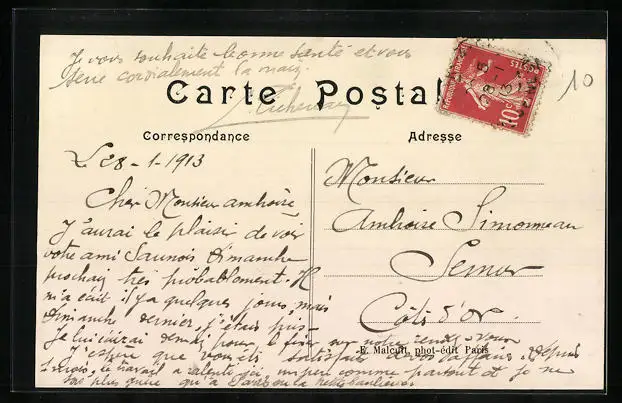 Je vous souhaite bonne santé et vous
serre cordialement la main.
Carte Postale
Correspondance
Adresse
RÉPUBLIQUE FRANÇAISE
POSTES
10c
10
Le 8-1-1913
Cher Monsieur Ambroise
J'aurai le plaisir de voir
votre ami Saunois dimanche
prochain très probablement. Il
m'a écrit il y a quelques jours, mais
dimanche dernier, j'étais pris-
Je lui écrirai demain pour le fixer sur notre rendez-vous
J'espère que vous êtes satisfait de vos affaires. Depuis
le travail a ralenti ici, un peu comme partout et je ne
plus guère qu'à Paris ou la banlieue.
Monsieur
Ambroise Simonneau
Semur
Côte d'Or.
E. Malcuit, phot-édit Paris